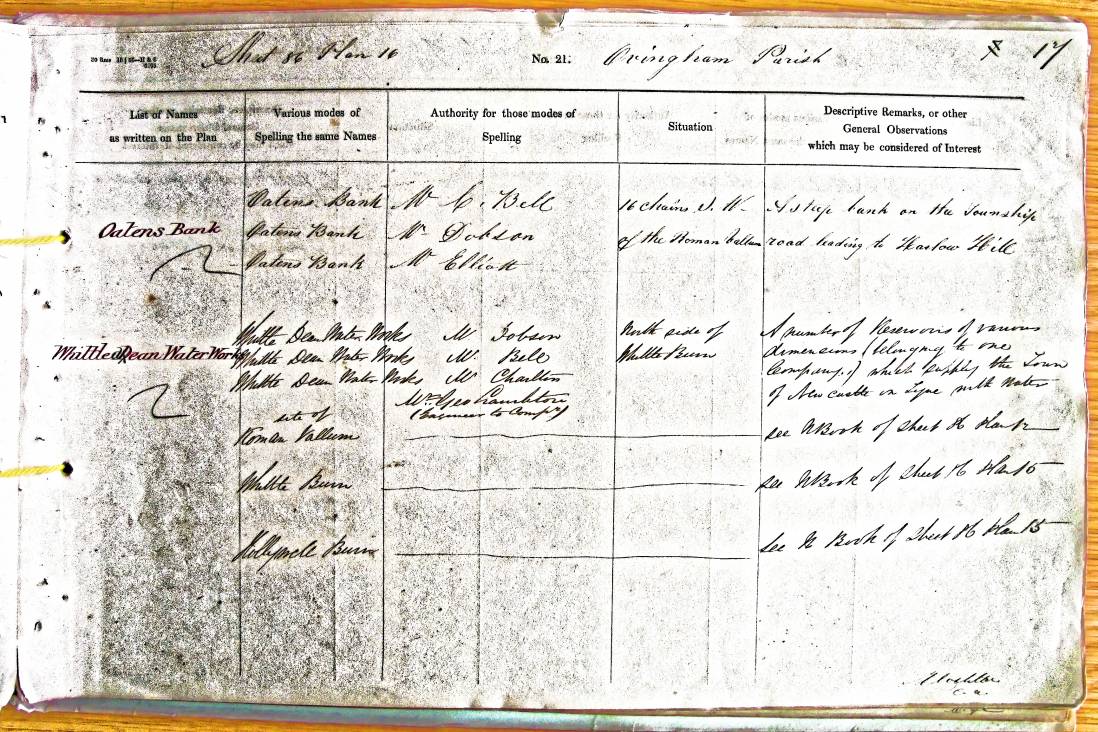 Sheet 86 Plan 16 No. 21. Ovingham Parish 17
List of Names
as written on the Plan
Various modes of
Spelling the same Names
Authority for those modes of
Spelling
Situation
Descriptive Remarks, or other
General Observations
which may be considered of Interest
Oatens Bank
Oatens Bank Mr C. Bell 16 chains S. W. A steep bank on the Township
Oatens Bank Mr Dobson of the Roman Vallum road leading to Harlow Hill
Oatens Bank Mr Elliott
Whittle Dean Water Works
Whittle Dean Water Works Mr Dobson North side of A number of Reservoirs of various
Whittle Dean Water Works Mr Bell Whittle Burn dimensions (belonging to one
Whittle Dean Water Works Mr Charlton Company,) which supply the Town
Mr. Geo (Engineer to Compy) of Newcastle on Tyne with Water
site of
Roman Vallum see N Book of Sheet Plan
Whittle Burn see N Book of Sheet Plan 15
Hollywell Burn see N Book of Sheet Plan 15